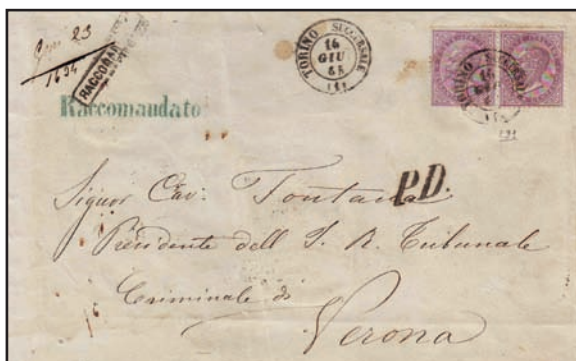 23
1694
RACCOMAN
Raccomandato
TORINO SUCCURSALE
16
GIU
65
(1)
TORINO
16
P.D.
Signor Cav: Fontana
Presidente dell I. R. Tribunale
Criminale di
Verona